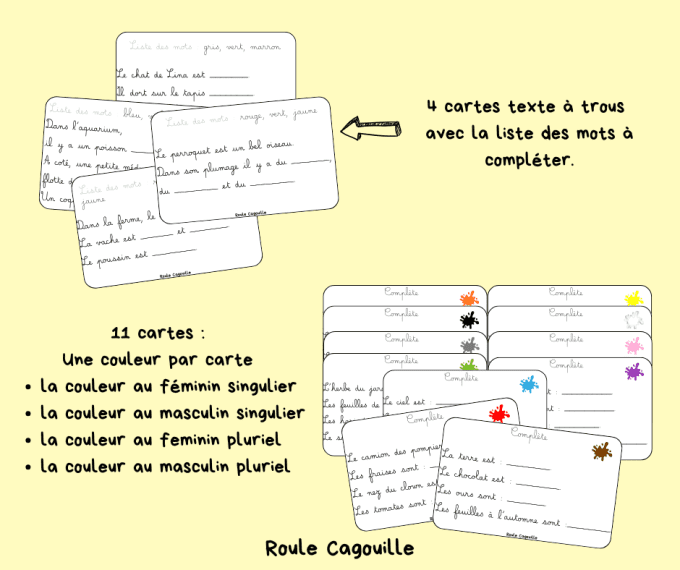 Liste des mots gris, vert, marron
Le chat de Lina est
Il dort sur le tapis
Liste des mots bleu,
Dans l'aquarium,
il y a un poisson
A coté, une petite
flotte
Un
Liste des mots rouge, vert, jaune
Le perroquet est un bel oiseau.
Dans son plumage il y a du ,
du et du
Roule Cagouille
Liste des mots
jaune
Dans la ferme, le
La vache est et
Le poussin est
Roule Cagouille
4 cartes texte à trous
avec la liste des mots à
compléter.
11 cartes :
Une couleur par carte
• la couleur au féminin singulier
• la couleur au masculin singulier
• la couleur au feminin pluriel
• la couleur au masculin pluriel
Complète
Complète
Complète
Complète
L'herbe du
Les feuilles de
Les
Le
Complète
Complète
Complète
Complète
:
:
Complète
Le ciel est :
Complète
Le camion des pompiers
Les fraises sont :
Le nez du clown est
Les tomates sont :
Complète
La terre est :
Le chocolat est :
Les ours sont :
Les feuilles à l'automne sont :
Roule Cagouille
Roule Cagouille